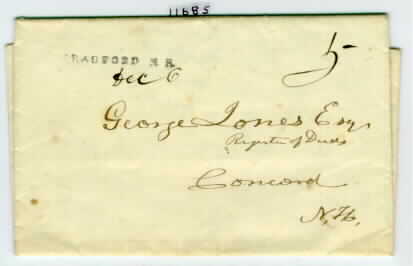 11685
BRADFORD N.H.
Dec 6
5
George Jones Esq
Register of Deeds
Concord
N.H.